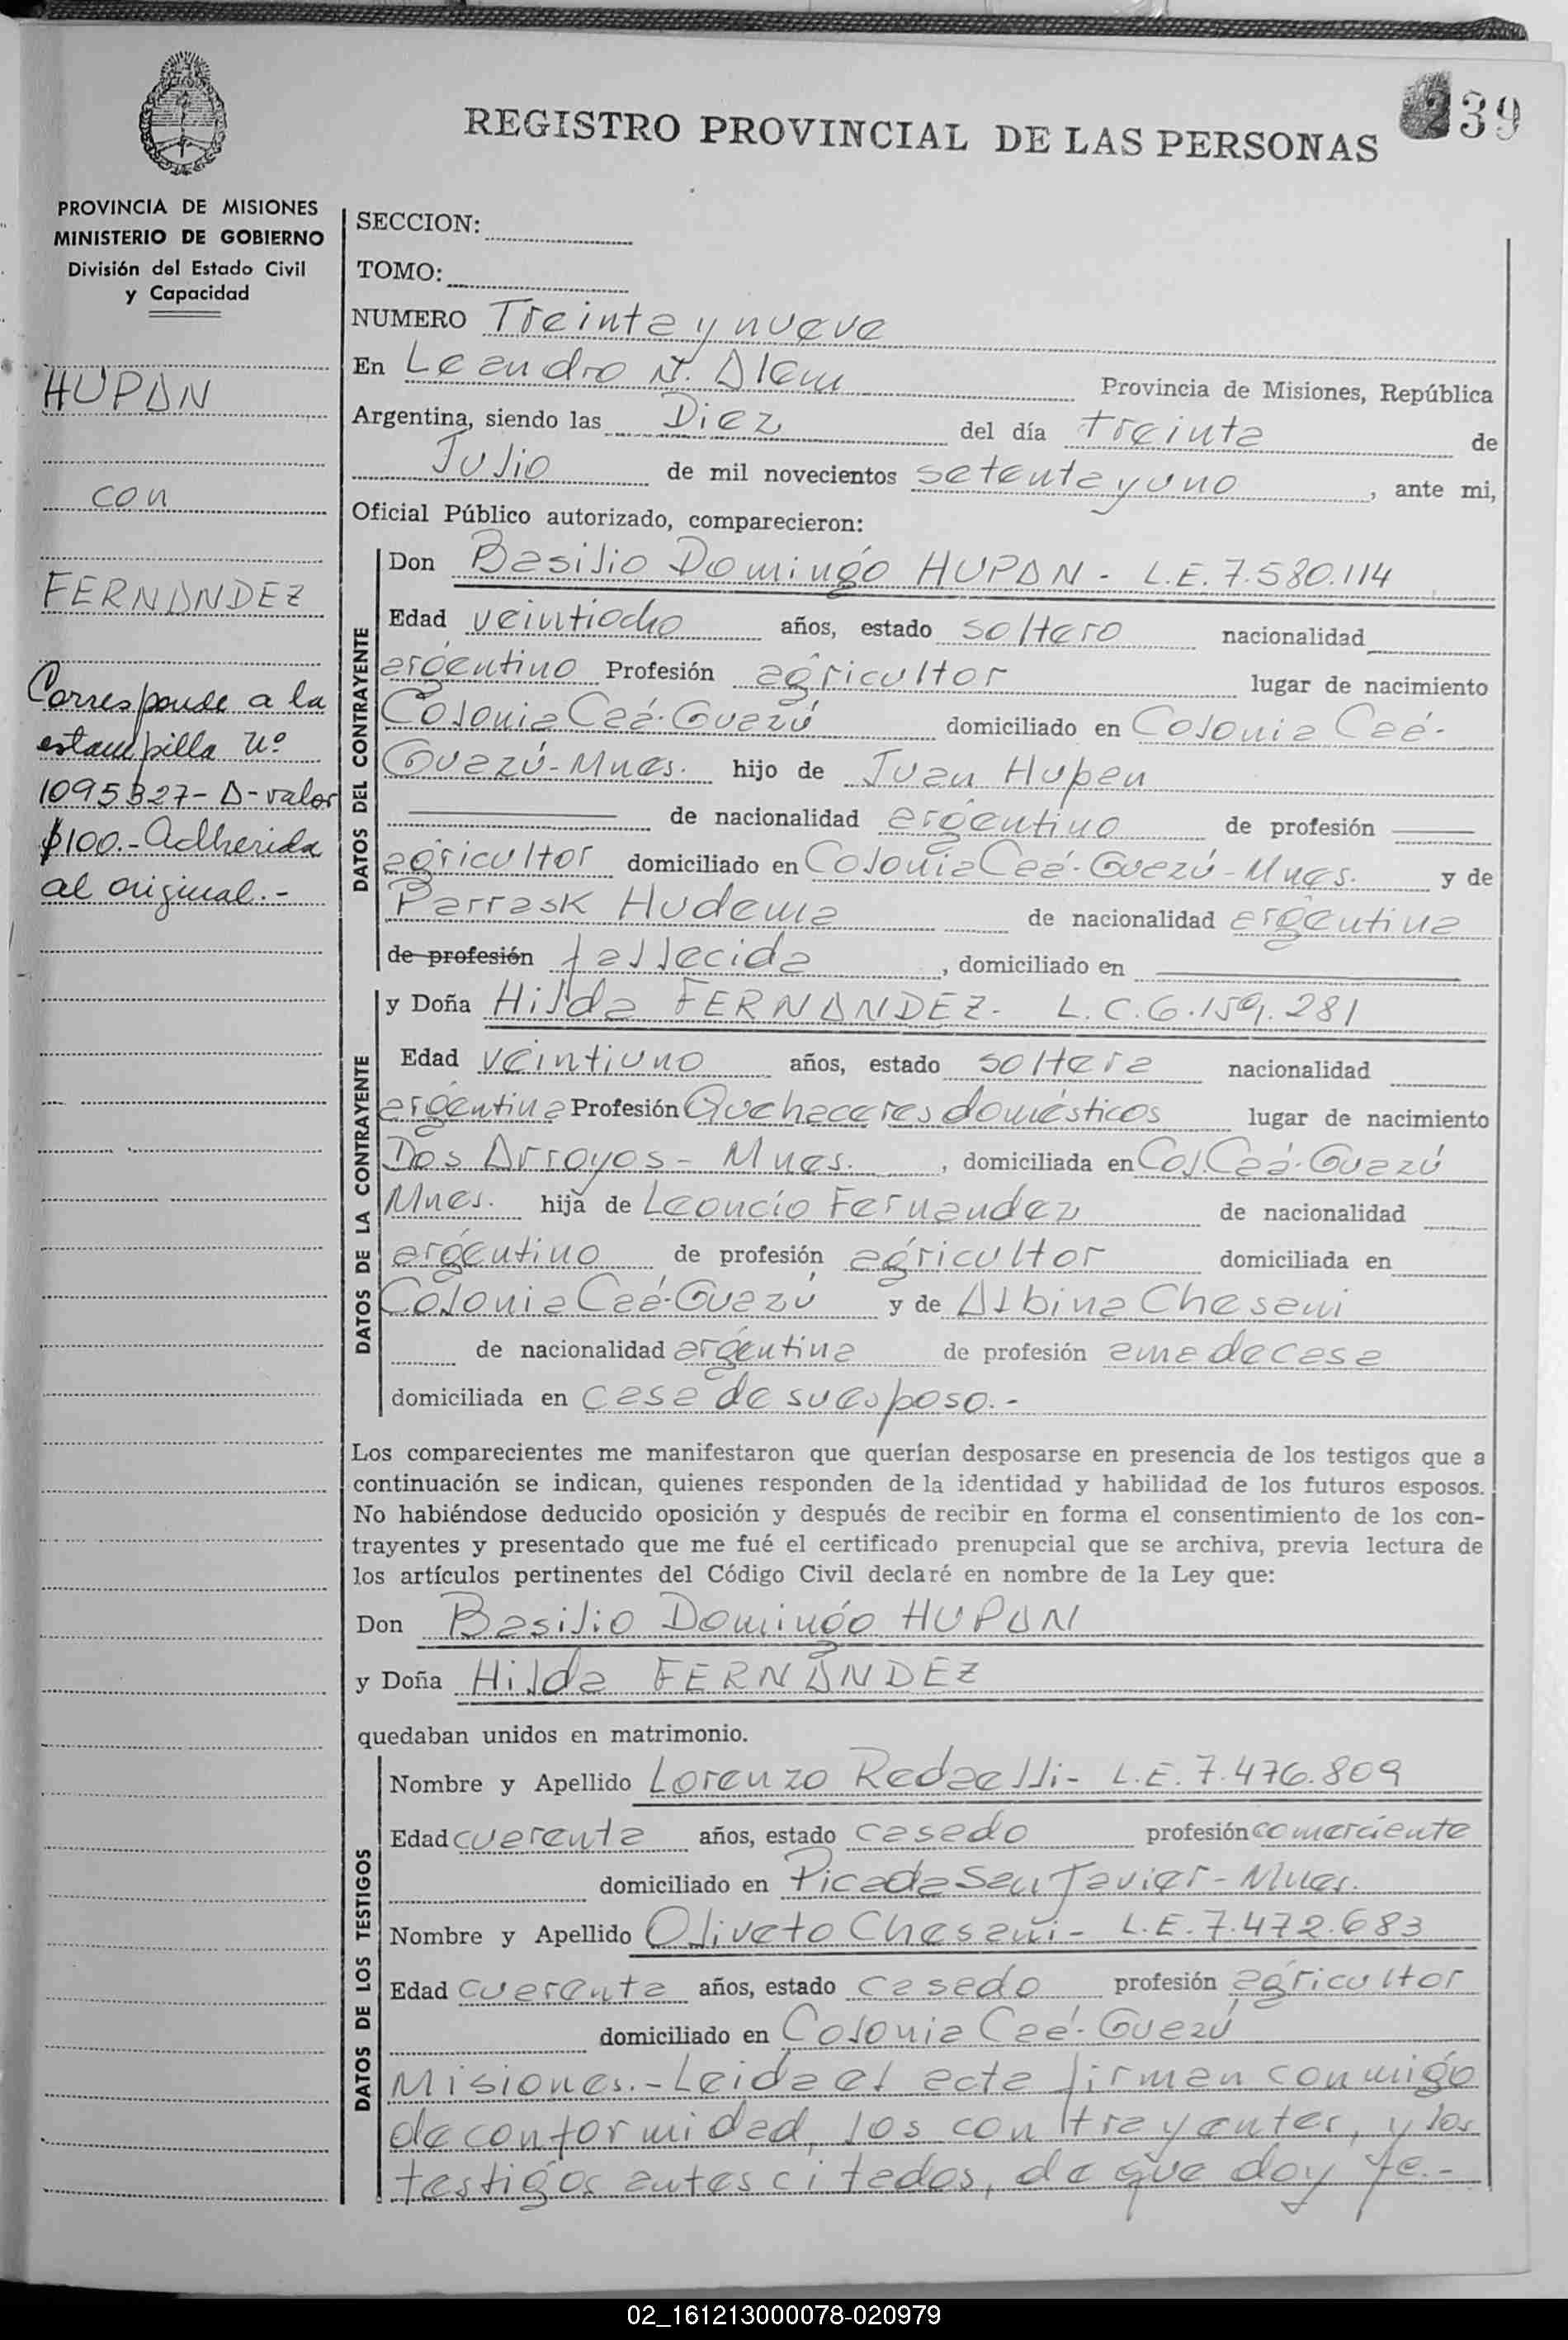 239
REGISTRO PROVINCIAL DE LAS PERSONAS
PROVINCIA DE MISIONES
MINISTERIO DE GOBIERNO
División del Estado Civil
y Capacidad
HUPAN
con
FERNANDEZ
Corresponde a la
estampilla Nº
1095327-A-valor
$100.- Adherida
al original.-
SECCION:
TOMO:
NUMERO Treinta y nueve
En Leandro N. Alem Provincia de Misiones, República
Argentina, siendo las Diez del día treinta de
Julio de mil novecientos setenta y uno, ante mi,
Oficial Público autorizado, comparecieron:
DATOS DEL CONTRAYENTE
Don Basilio Domingo HUPAN - L.E. 7.580.114
Edad veintiocho años, estado soltero nacionalidad
argentino Profesión agricultor lugar de nacimiento
Colonia Caá-Guazú domiciliado en Colonia Caá-
Guazú-Mnes. hijo de Juan Hupan
de nacionalidad argentino de profesión
agricultor domiciliado en Colonia Caá-Guazú-Mnes. y de
Parrask Hudema de nacionalidad argentina
de profesión fallecida, domiciliado en
DATOS DE LA CONTRAYENTE
y Doña Hilda FERNANDEZ- L.C. 6.159.281
Edad veintiuno años, estado soltera nacionalidad
argentina Profesión Quehaceres domésticos lugar de nacimiento
Dos Arroyos - Mnes., domiciliada en Col. Caá-Guazú
Mnes. hija de Leoncio Fernandez de nacionalidad
argentino de profesión agricultor domiciliada en
Colonia Caá-Guazú y de Albina Chesani
de nacionalidad argentina de profesión ama de casa
domiciliada en casa de su esposo.-
Los comparecientes me manifestaron que querían desposarse en presencia de los testigos que a
continuación se indican, quienes responden de la identidad y habilidad de los futuros esposos.
No habiéndose deducido oposición y después de recibir en forma el consentimiento de los con-
trayentes y presentado que me fué el certificado prenupcial que se archiva, previa lectura de
los artículos pertinentes del Código Civil declaré en nombre de la Ley que:
Don Basilio Domingo HUPAN
y Doña Hilda FERNANDEZ
quedaban unidos en matrimonio.
DATOS DE LOS TESTIGOS
Nombre y Apellido Lorenzo Redaelli- L.E. 7.476.809
Edad cuarenta años, estado casado profesión comerciante
domiciliado en Picada San Javier - Mnes.
Nombre y Apellido Oliveto Chesani - L.E. 7.472.683
Edad cuarenta años, estado casado profesión agricultor
domiciliado en Colonia Caá-Guazú
Misiones.- Leida el acta firman conmigo
de conformidad, los contrayentes, y los
testigos antes citados, de que doy fe.-
02_161213000078-020979